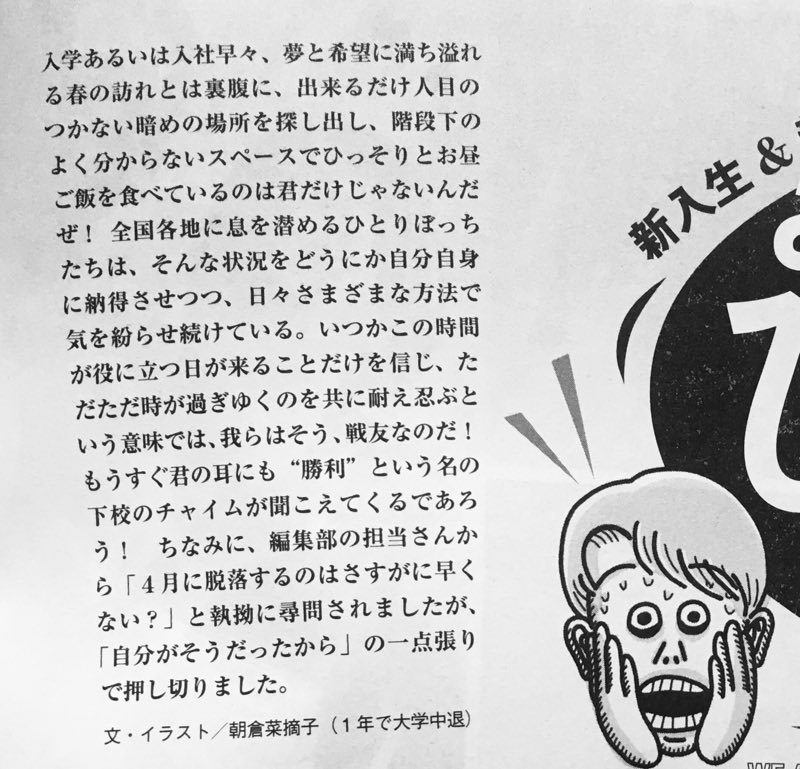 入学あるいは入社早々、夢と希望に満ち溢れ
る春の訪れとは裏腹に、出来るだけ人目の
つかない暗めの場所を探し出し、階段下の
よく分からないスペースでひっそりとお昼
ご飯を食べているのは君だけじゃないんだ
ぜ！ 全国各地に息を潜めるひとりぼっち
たちは、そんな状況をどうにか自分自身
に納得させつつ、日々さまざまな方法で
気を紛らせ続けている。いつかこの時間
が役に立つ日が来ることだけを信じ、た
だただ時が過ぎゆくのを共に耐え忍ぶと
いう意味では、我らはそう、戦友なのだ！
もうすぐ君の耳にも“勝利”という名の
下校のチャイムが聞こえてくるであろ
う！ ちなみに、編集部の担当さんか
ら「４月に脱落するのはさすがに早く
ない？」と執拗に尋問されましたが、
「自分がそうだったから」の一点張り
で押し切りました。
文・イラスト／朝倉菜摘子（１年で大学中退）
新入生＆